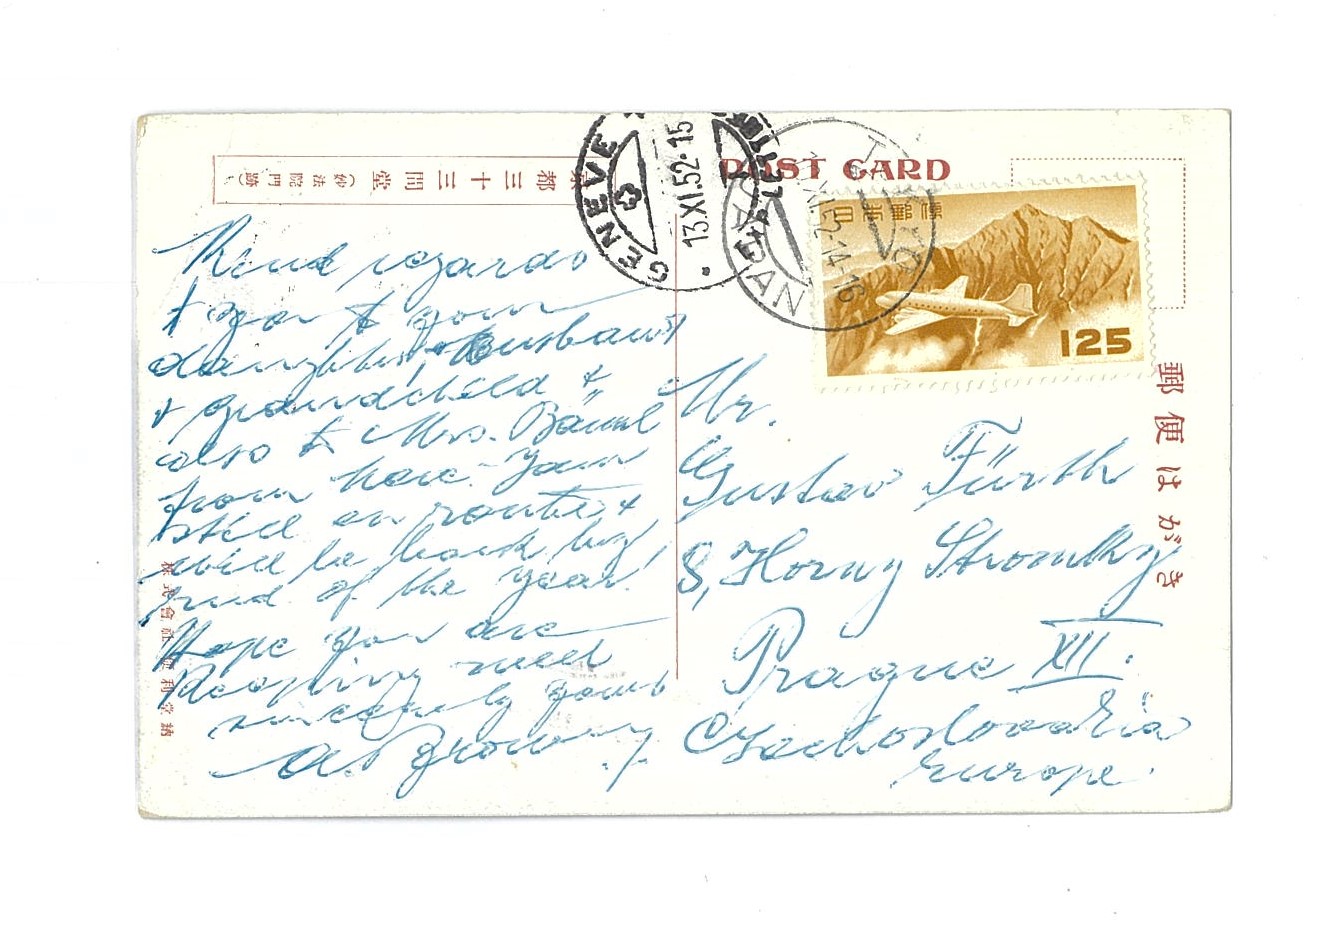 POST CARD
京都 三十三間堂 (妙法院門跡)
GENEVE
13.XI.52-15
TOKYO
JAPAN
XI.52.14-16
日本郵便
125
郵便はがき
Kind regards
to you & your
daughter, husband
& grandchild &
also to Mrs.
from here.
still en route &
will be back by
end of the year.
Hope you are
keeping well
sincerely yours
Mr.
Gustav Fürth
8, Horny Stromky
Prague XII.
Czechoslovakia
Europe.
株式會社便利堂納